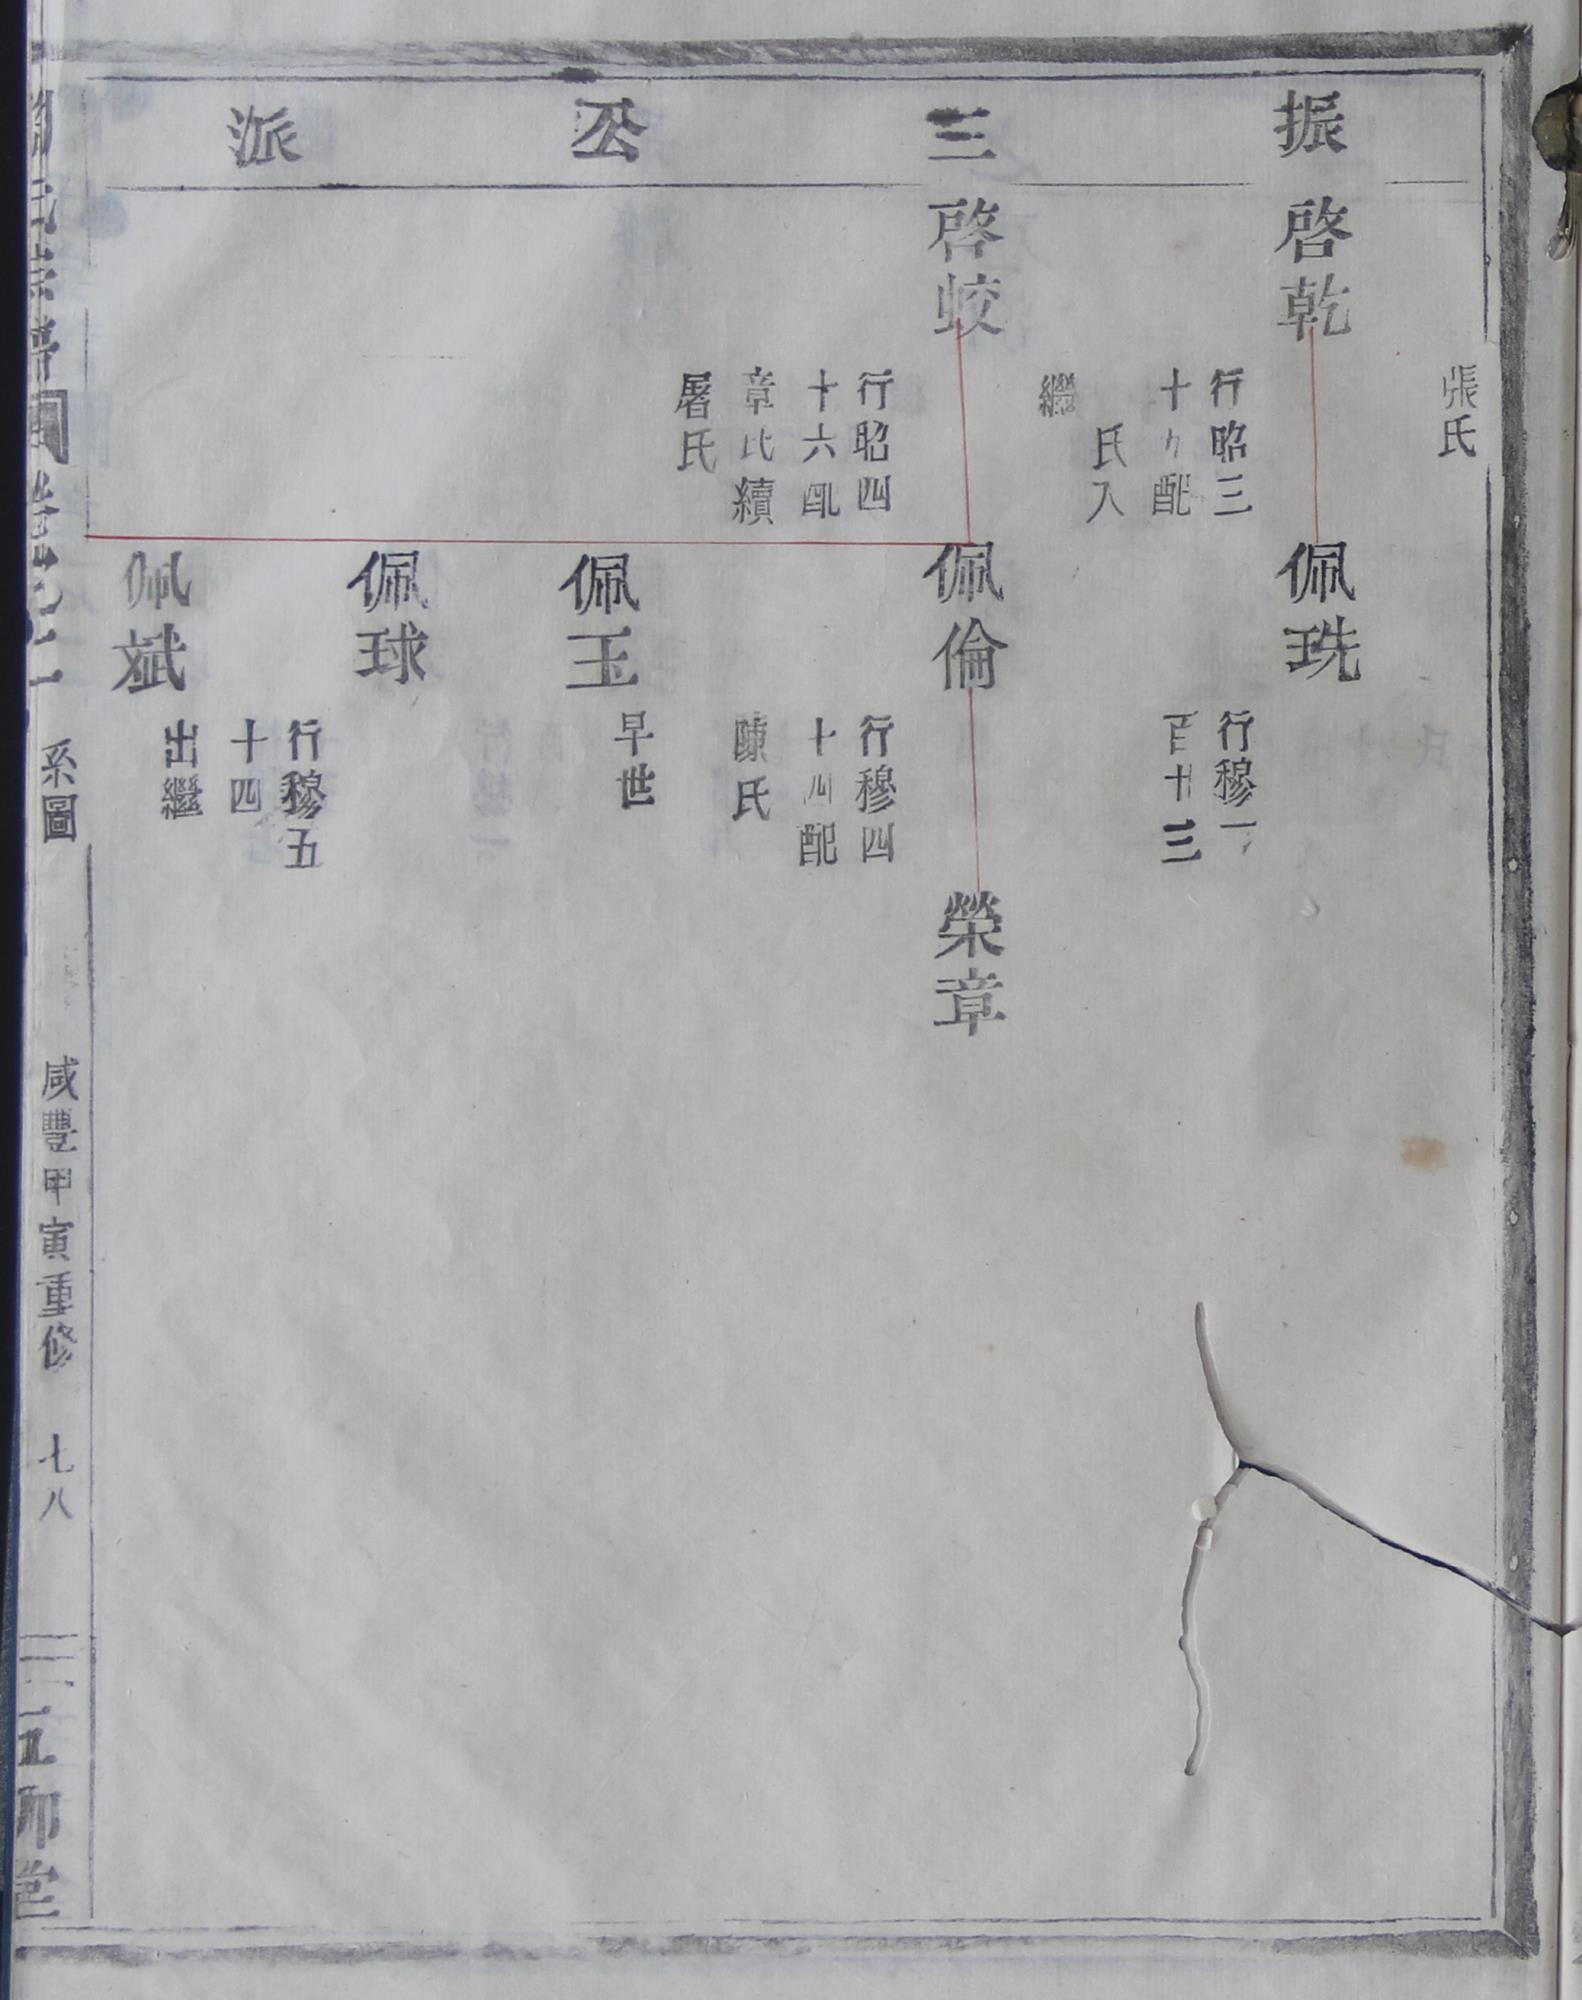 振三公派
張氏
啓乾
行昭三
十九配
氏入
繼
佩珗
行穆一
百十三
啓蛟
行昭四
十六配
章氏續
屠氏
佩倫
行穆四
十四配
陳氏
榮章
佩玉
早世
佩球
行穆五
十四
佩斌
出繼
系圖
咸豐甲寅重修
七八